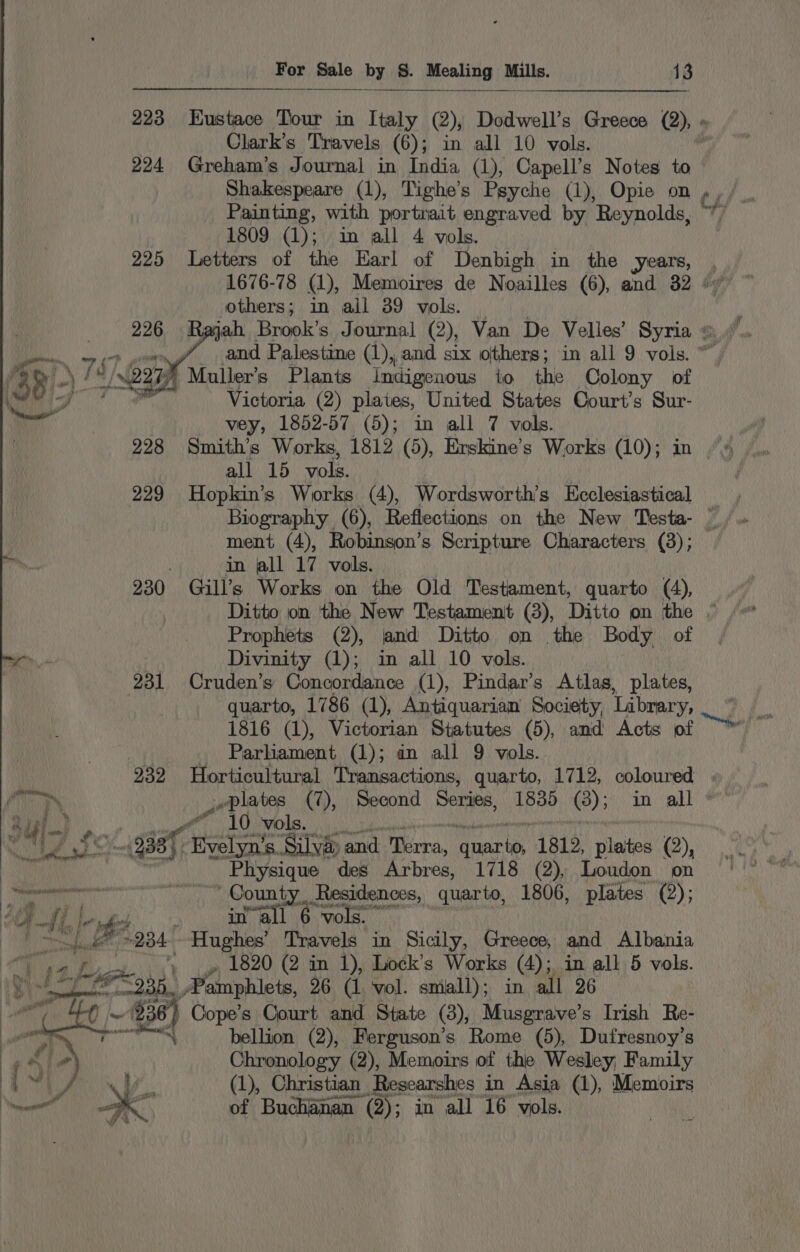 For Sale by S. Mealing Mills. 13
223 Eustace Tour in Italy (2), Dodwell's Greece (2),
Clark's Travels (6); in all 10 vols.
224 Greham's Journal in India (1), Capell's Notes to
Shakespeare (1), Tighe's Psyche (1), Opie on
Painting, with portrait engraved by Reynolds,
1809 (1); in all 4 vols.
225 Letters of the Earl of Denbigh in the years,
1676-78 (1), Memoires de Noailles (6), and 32
others; in all 39 vols.
226 Rajah Brook's Journal (2), Van De Velles' Syria
and Palestine (1), and six others; in all 9 vols.
227 Muller's Plants Indigenous to the Colony of
Victoria (2) plates, United States Court's Sur-
vey, 1852-57 (5); in all 7 vols.
228 Smith's Works, 1812 (5), Erskine's Works (10); in
all 15 vols.
229 Hopkin's Works (4), Wordsworth's Ecclesiastical
Biography (6), Reflections on the New Testa-
ment (4), Robinson's Scripture Characters (3);
in all 17 vols.
230 Gill's Works on the Old Testament, quarto (4),
Ditto on the New Testament (3), Ditto on the
Prophets (2), and Ditto on the Body of
Divinity (1); in all 10 vols.
231 Cruden's Concordance (1), Pindar's Atlas, plates,
quarto, 1786 (1), Antiquarian Society, Library,
1816 (1), Victorian Statutes (5), and Acts of
Parliament (1); in all 9 vols.
232 Horticultural Transactions, quarto, 1712, coloured
plates (7), Second Series, 1835 (3); in all
10 vols.
233 Evelyn's Silva and Terra, quarto, 1812, plates (2),
Physique des Arbres, 1718 (2), Loudon on
County Residences, quarto, 1806, plates (2);
in all 6 vols.
234 Hughes' Travels in Sicily, Greece, and Albania
1820 (2 in 1), Lock's Works (4); in all 5 vols.
235 Pamphlets, 26 (1 vol. small); in all 26
236 Cope's Court and State (3), Musgrave's Irish Re-
bellion (2), Ferguson's Rome (5), Dufresnoy's
Chronology (2), Memoirs of the Wesley, Family
(1), Christian Researshes in Asia (1), Memoirs
of Buchanan (2); in all 16 vols.